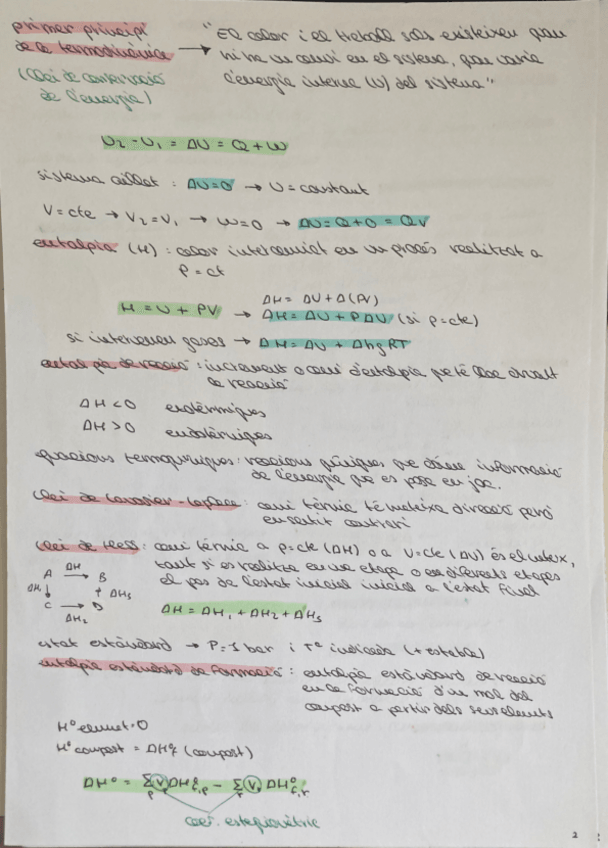 primer principi
de la termodinàmica → "El calor i el treball sols existeixen quan
hi ha un canvi en el sistema, quan varia
l'energia interna (U) del sistema"
(llei de conservació
de l'energia)
U₂ - U₁ = ΔU = Q + W
sistema aïllat : ΔU=0 → U = constant
V = cte → V₂ = V₁ → W=0 → ΔU = Q + 0 = Qv
entalpia (H) : calor intercanviat en un procés realitzat a
P = ct
H = U + PV → ΔH = ΔU + Δ(PV)
ΔH = ΔU + PΔU (si p=cte)
si intervenen gasos → ΔH = ΔU + ΔngRT
entalpia de reacció : increment o canvi d'entalpia que té lloc durant
la reacció
ΔH < 0 exotèrmiques
ΔH > 0 endotèrmiques
equacions termoquímiques: reaccions químiques que dónen informació
de l'energia que es posa en joc.
Llei de Lavoisier-Laplace : canvi tèrmic té mateixa direcció però
en sentit contrari
Llei de Hess : canvi tèrmic a p=cte (ΔH) o a V=cte (ΔU) és el mateix,
tant si es realitza en una etapa o en diferents etapes
el pas de l'estat inicial inicial a l'estat final
A ΔH → B
ΔH₁ ↓ ↑ ΔH₃
C → D
ΔH₂
ΔH = ΔH₁ + ΔH₂ + ΔH₃
estat estàndard → P=1 bar i Tª indicada (+ estable)
entalpia estàndard de formació : entalpia estàndard de reacció
en la formació d'un mol del
compost a partir dels seus elements
H° element = 0
H° compost = ΔH°f (compost)
ΔH° = Σp νp ΔH°f,p - Σr νr ΔH°f,r
coef. estequiomètric
2